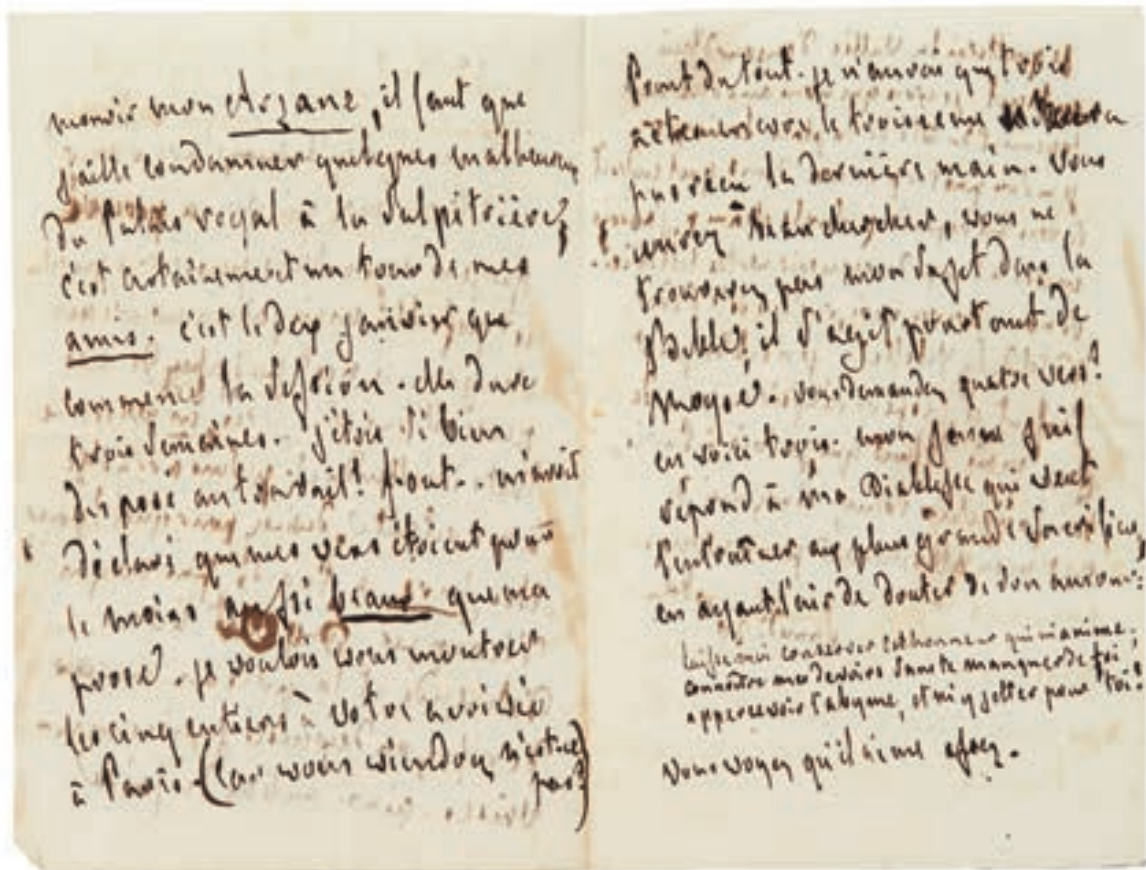 mourir mon Arzane, il faut que
j'aille condamner quelques malheureux
du Palais royal à la Salpitrière,
c'est certainement un tour de mes
amis. c'est le dix janvier que
commence la session. elle dure
trois semaines. j'étois si bien
disposé au travail! font.. m'avoit
déclaré que mes vers étoient pour
le moins aussi beaux que ma
prose. je voulois vous montrer
les cinq entiers à votre arrivée
à Paris. (car vous viendrez n'est-ce
pas?)
Point du tout. je n'aurai que trois
actes encore le troisieme n'aura
pas reçu la dernière main. Vous
aurez beau chercher, vous ne
trouverez pas mon sujet dans la
Bible; il s'agit pourtant de
Moyse. vous demandez quatre vers?
en voici trois. mon jeune juif
répond à ma Diablesse qui veut
l'entraîner aux plus grands sacrilèges,
en ayant l'air de douter de son amour:
laisse moi conserver cet honneur qui m'anime;
connoître mes devoirs sans te manquer de foi
appercevoir l'abyme, et m'y jetter pour toi.
vous voyez qu'il aime assez.